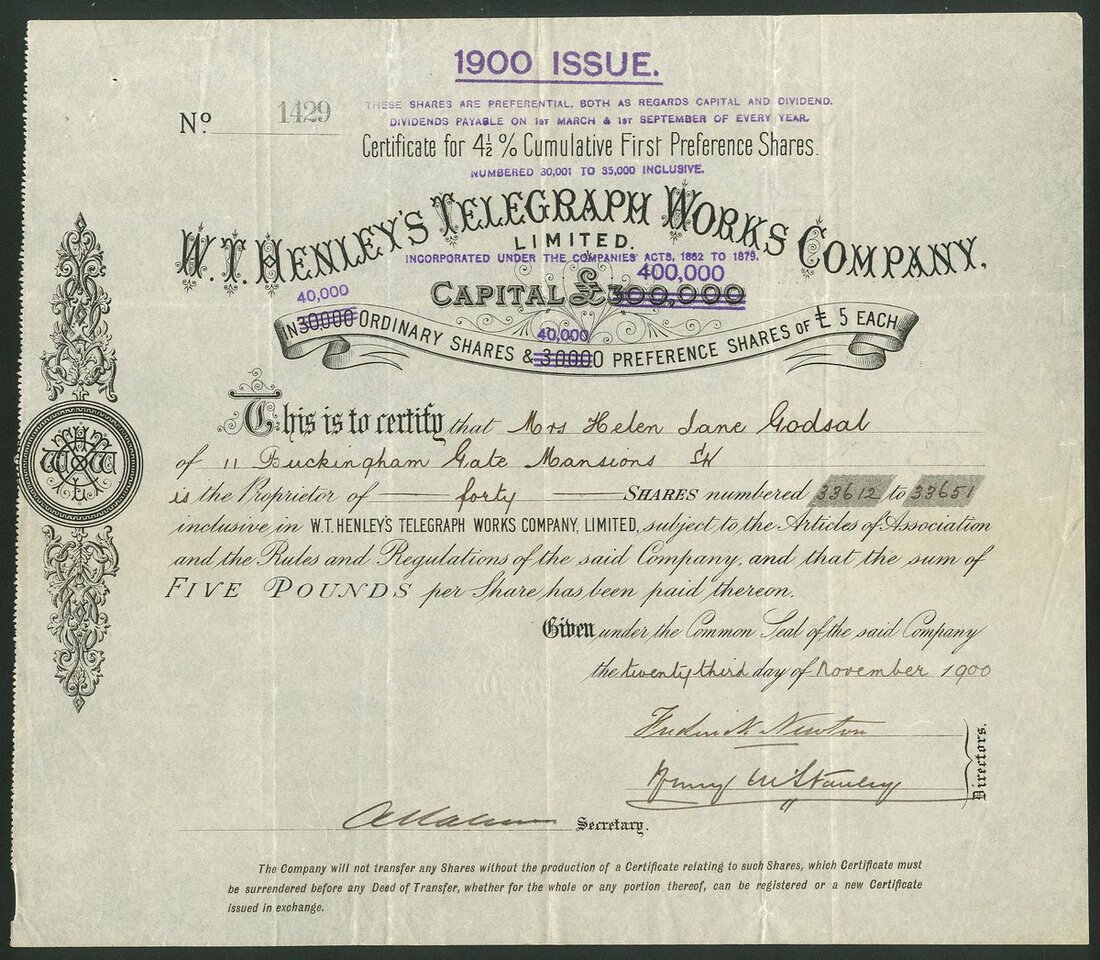 1900 ISSUE.
Nº 1429
THESE SHARES ARE PREFERENTIAL, BOTH AS REGARDS CAPITAL AND DIVIDEND.
DIVIDENDS PAYABLE ON 1ST MARCH & 1ST SEPTEMBER OF EVERY YEAR.
Certificate for 4½ % Cumulative First Preference Shares.
NUMBERED 30,001 TO 35,000 INCLUSIVE.
W. T. HENLEY'S TELEGRAPH WORKS COMPANY,
LIMITED.
INCORPORATED UNDER THE COMPANIES' ACTS, 1862 TO 1879.
400,000
CAPITAL £300,000
40,000
IN 30000 ORDINARY SHARES & 30000 PREFERENCE SHARES OF £ 5 EACH
40,000
This is to certify that Mrs Helen Jane Godsal
of 11 Buckingham Gate Mansions SW
is the Proprietor of forty SHARES numbered 33612 to 33651
inclusive in W.T. HENLEY'S TELEGRAPH WORKS COMPANY, LIMITED, subject to the Articles of Association
and the Rules and Regulations of the said Company, and that the sum of
FIVE POUNDS per Share has been paid thereon.
Given under the Common Seal of the said Company
the twenty third day of November 1900
Frederick Newton
Henry M Stanley
Directors.
Secretary.
The Company will not transfer any Shares without the production of a Certificate relating to such Shares, which Certificate must
be surrendered before any Deed of Transfer, whether for the whole or any portion thereof, can be registered or a new Certificate
issued in exchange.